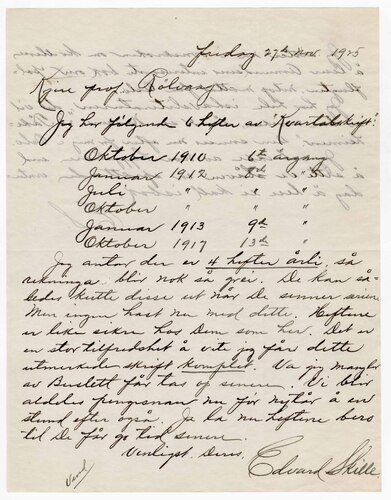 Fredag 27de Nov. 1925
Kjære prof. Rölvaag
Jeg har følgende 6 hefter av "Kvartalskrift":
Oktober 1910 6te årgang
Januar 1912 8de "
Juli " " "
Oktober " " "
Januar 1913 9de "
Oktober 1917 13de "
Jeg antar der er 4 hefter årli, så
rekninga blir nok så grei. De kan så-
ledes kutte disse ut når De senner serien.
Men ingen hast nu med dette. Heftene
er like sikre hos Dem som her. Det er
en stor tilfredshet å vite jeg får dette
utmerkede skrift komplet. Va jeg mangler
av Buslett får tas op senere. Vi blir
aldeles pengesnau nu før nytår å en
stund efter også. Ja la nu heftene bero
til De får go tid senere.
Venligst Deres,
Edvard Skille
Vend